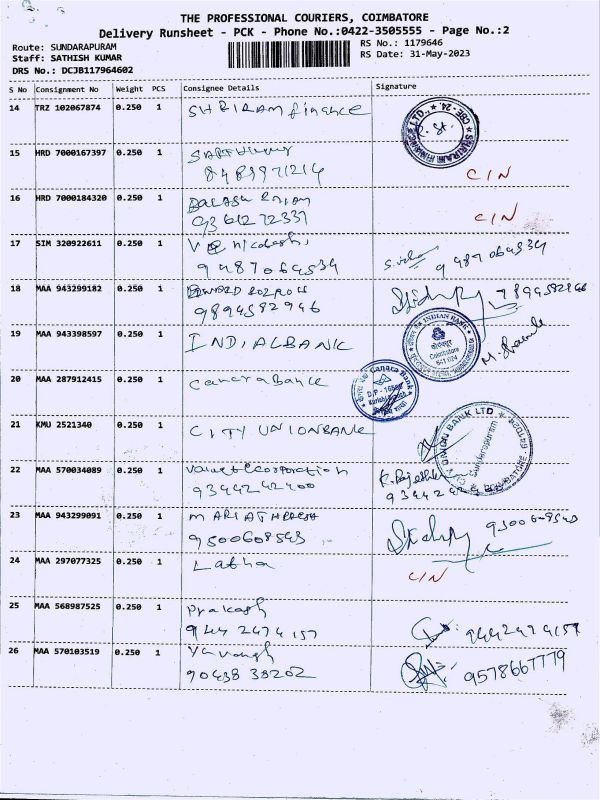 THE PROFESSIONAL COURIERS, COIMBATORE
Delivery Runsheet - PCK - Phone No.:0422-3505555 - Page No.:2
Route: SUNDARAPURAM
Staff: SATHISH KUMAR
DRS No.: DCJB117964602
RS No.: 1179646
RS Date: 31-May-2023
S No Consignment No Weight PCS Consignee Details Signature
14 TRZ 102067874 0.250 1 SHRIRAM finance
15 HRD 7000167397 0.250 1
8489971214 C/N
16 HRD 7000184320 0.250 1
9361272331 C/N
17 SIM 320922611 0.250 1
9487064534 9487064534
18 MAA 943299182 0.250 1
9894582946 7894582946
19 MAA 943398597 0.250 1 INDIALBANK
INDIAN BANK
Coimbatore
641 024
20 MAA 287912415 0.250 1 canara Bank
Canara Bank
21 KMU 2521340 0.250 1 CITY UNIONBANK
UNION BANK LTD
Sundarapuram
22 MAA 570034089 0.250 1
9344242400
23 MAA 943299091 0.250 1
9500608543 9500608543
24 MAA 297077325 0.250 1 Labha
C/N
25 MAA 568987525 0.250 1 Prakash
9442474157 9442474157
26 MAA 570103519 0.250 1
90438 38202 9578667779